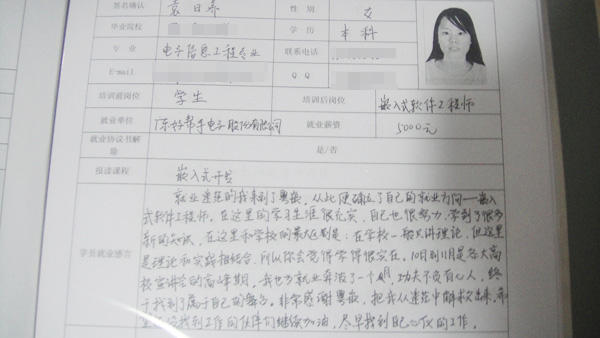 签名确认 袁日乔 性别 女
毕业院校 学历 本科
专业 电子信息工程专业 联系电话
E-mail QQ
培训前岗位 学生 培训后岗位 嵌入式软件工程师
就业单位 广东好帮手电子股份有限公司 就业薪资 5000元
就业协议书解除 是/否
报读课程 嵌入式开发
学员就业感言
就业迷茫的我来到了粤嵌,从此便确立了自己的就业方向——嵌入
式软件工程师,在这里的学习生涯很充实,自己也很努力,学到了很多
新的知识,在这里和学校的最大区别是:在学校一般只讲理论,但这里
是理论和实践相结合,所以你会觉得学得很实在。10月到11月是各大高
校宣讲会的高峰期,我也为就业奔波了一个月,功夫不负有心人,终
于找到了属于自己的舞台。非常感谢粤嵌,把我从迷茫中解救出来,希
找到工作的伙伴们继续加油,尽早找到自己心仪的工作。